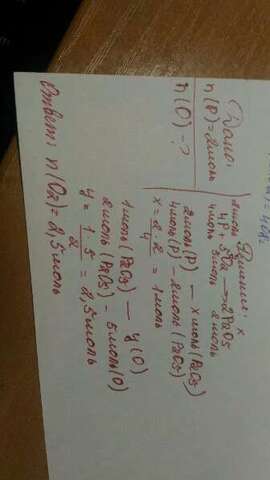 Дано:
n(P)=2моль
n(O)-?
Решение:
2моль x
4P + 5O2 → 2P2O5
4моль 5моль 2моль
2моль(P) — x моль(P2O5)
4моль(P) — 2моль(P2O5)
x = 2·2/4 = 1моль
1моль(P2O5) — y(O)
2моль(P2O5) — 5моль(O)
y = 1·5/2 = 2,5моль
Ответ: n(O2)=2,5моль